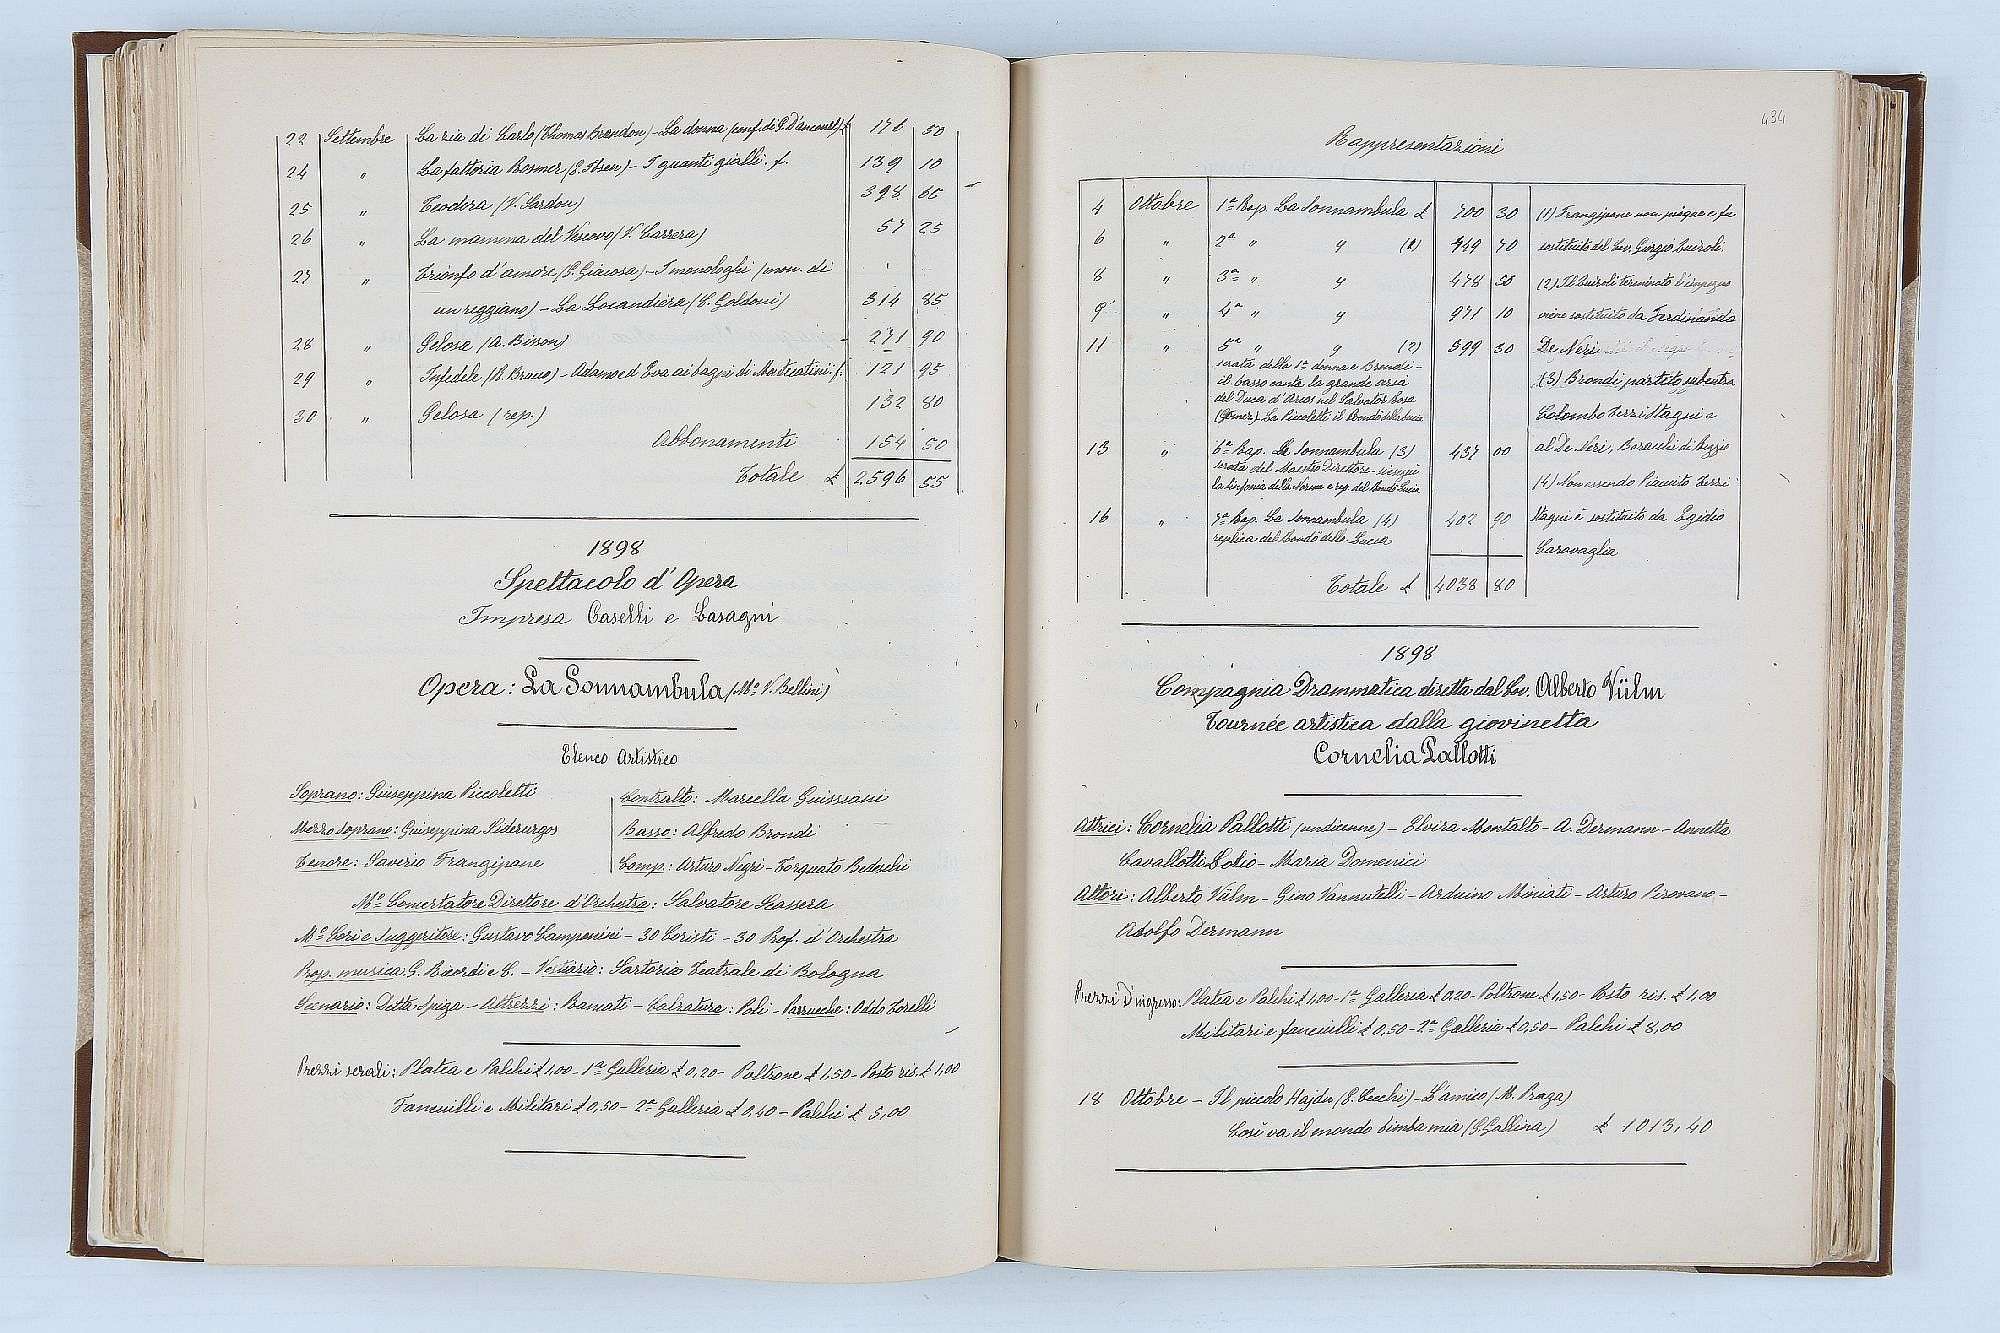 22 Settembre La zia di Carlo (Thomas Brandon) - La donna (conf. di G. D'ancourt) £ 176 50
24 " La fattoria Rosmer (E. Ibsen) - I guanti gialli. f. 139 10
25 " Teodora (V. Sardou) 398 65
26 " La mamma del Vescovo (V. Carrera) 57 25
27 " Trionfo d'amore (G. Giacosa) - I monologhi (mon. di
un reggiano) - La Locandiera (C. Goldoni) 314 85
28 " Gelosa (A. Bisson) 271 90
29 " Infedele (R. Bracco) - Adamo ed Eva ai bagni di Montecatini f. 121 95
30 " Gelosa (rep.) 132 80
Abbonamenti 154 50
Totale £ 2596 55
1898
Spettacolo d'Opera
Impresa Caselli e Casagni
Opera: La Sonnambula (Mo V. Bellini)
Elenco Artistico
Soprano: Giuseppina Piccoletti
Mezzo Soprano: Giuseppina Siderurgos
Tenore: Saverio Frangipane
Contralto: Marcella Guissiani
Basso: Alfredo Brondi
Comp: Arturo Negri - Torquato Bedeschi
Mo Concertatore Direttore d'Orchestra: Salvatore Scassera
Mo Cori e Suggeritore: Gustavo Camporini - 30 Coristi - 30 Prof. d'Orchestra
Prop. musica: G. Ricordi e C. - Vestiario: Sartoria Teatrale di Bologna
Scenario: Ditta Spiga - Attrezzi: Bamati - Calzatura: Poli - Parrucche: Oddo Torelli
Prezzi serali: Platea e Palchi £ 1,00 - 1a Galleria £ 0,20 - Poltrone £ 1,50 - Posto ris. £ 1,00
Fanciulli e Militari £ 0,50 - 2a Galleria £ 0,40 - Palchi £ 5,00
434
Rappresentazioni
4 Ottobre 1a Rap. La Sonnambula £ 700 30
6 " 2a " " (1) 449 70
8 " 3a " " 478 50
9 " 4a " " 971 10
11 " 5a " " (2) 599 30
serata della 1a donna e Brondi -
il basso canta la grande aria
del Duca d'Arcos nel Salvator Rosa
(Gomez) La Piccoletti il Rondò della Lucia
13 " 6a Rap. La Sonnambula (3) 437 00
serata del Maestro Direttore - eseguì
la sinfonia della Norma e rep. del Rondò Lucia
16 " 7a Rap. La Sonnambula (4) 402 90
replica del Rondò della Lucia
Totale £ 4038 80
(1) Frangipane non piacque e fu
sostituito dal Cav. Giorgio Quiroli
(2) Il Quiroli terminato l'impegno
viene sostituito da Ferdinando
De Neri
(3) Brondi, partito subentra
Colombo Terzi Magni e
al De Neri, Baracchi di Reggio
(4) Non essendo Piaciuto Terzi
Magni è sostituito da Egidio
Caravaglia
1898
Compagnia Drammatica diretta dal Cav. Alberto Vülm
Tournée artistica dalla giovinetta
Cornelia Pallotti
Attrici: Cornelia Pallotti (undicenne) - Elvira Montalto - A. Dermann - Annetta
Cavallotti Solio - Maria Domenici
Attori: Alberto Vülm - Gino Vannutelli - Arduino Miniati - Arturo Pirovano -
Adolfo Dermann
Prezzi D'ingresso: Platea e Palchi £ 1,00 - 1a Galleria £ 0,20 - Poltrone £ 1,50 - Posto ris. £ 1,00
Militari e fanciulli £ 0,50 - 2a Galleria £ 0,50 - Palchi £ 8,00
18 Ottobre - Il piccolo Hajdn (S. Cecchi) - L'amico (M. Praga)
Così va il mondo bimba mia (G. Gallina) £ 1013,40